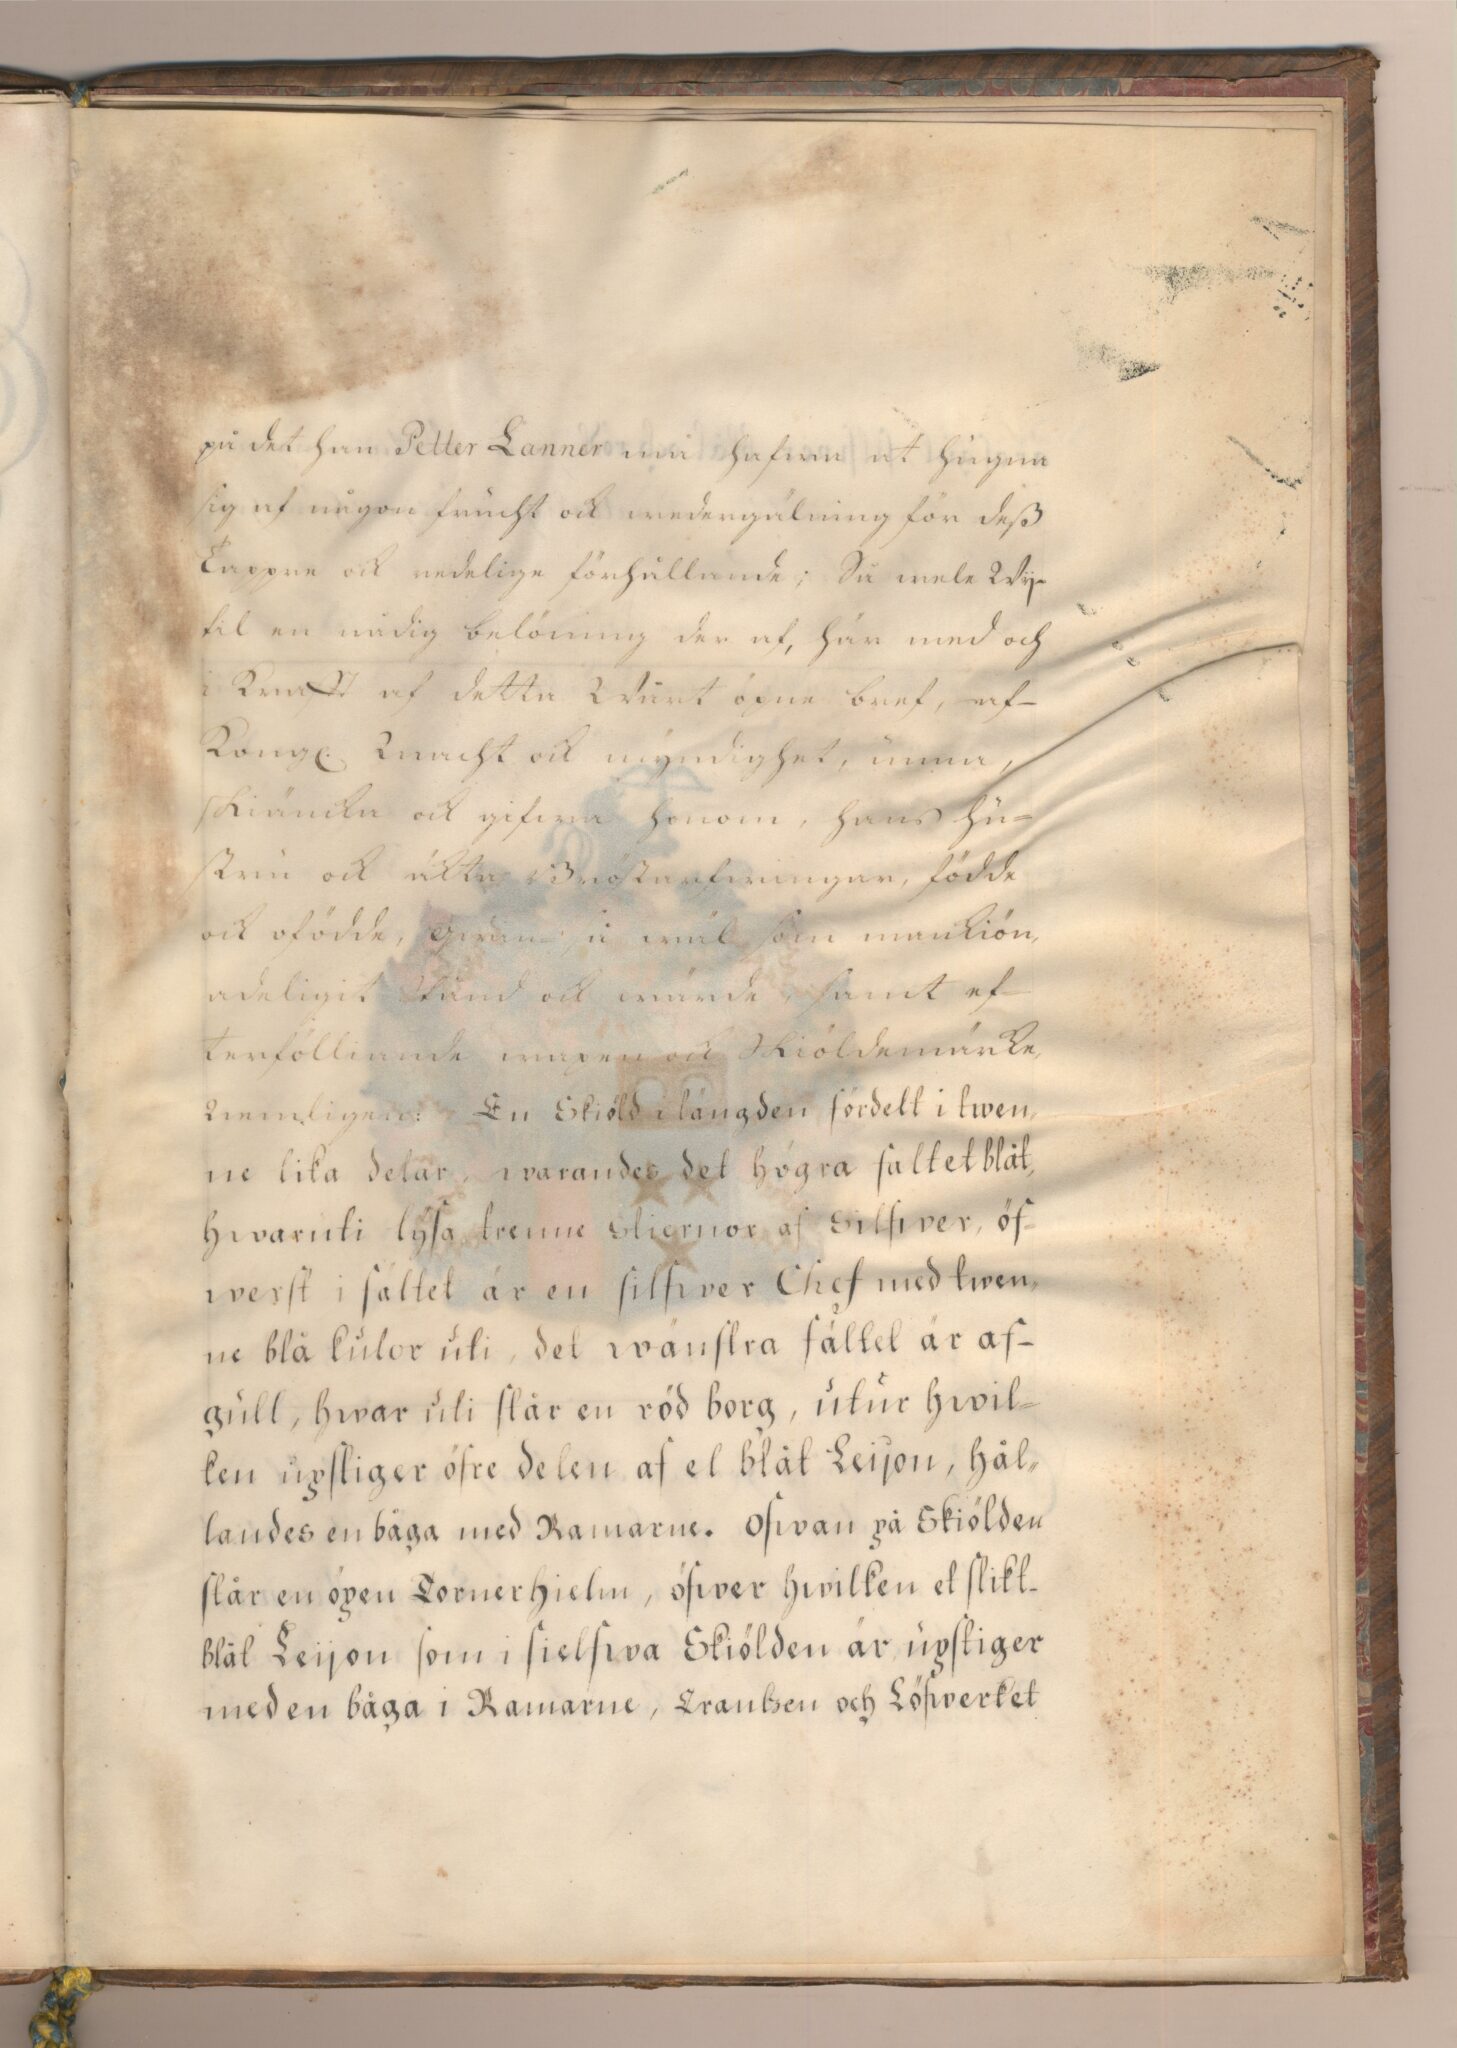 på det han Petter Lanner må hafwa at hugna
sig af någon frucht ock wedergälning för deß
Tappre ock redelige förhållande; Så wele Wij
til en nådig belöning der af, här med och
i Krafft af detta Wårt öpne bref, af-
Kongl. Macht ock myndighet, unna,
skiäncka ock gifwa honom, hans hu-
stru ock äkta Bröstarfwingar, födde
ock ofödde, qwin- så wäl som mankiön,
adeligit Stånd ock wärde, samt ef-
terfölliande wapen ock Skiöldemärke,
Nemligen: En Skiöld i längden fördelt i twen,
ne lika delar, warandes det högra fältet blåt,
hwaruti lysa trenne Stiernor af Silfwer, öf-
werst i fältet är en silfwer Chef med twen,
ne blå kulor uti, det wänstra fältet är af-
gull, hwar uti står en röd borg, utur hwil-
ken upstiger öfre delen af et blåt Leijon, hål,,
landes en båga med Ramarne. Ofwan på Skiölden
står en öpen Tornerhielm, öfwer hwilken et slikt-
blåt Leijon som i sielfwa Skiölden är, upstiger
med en båga i Ramarne, Crantsen och Löfwerket